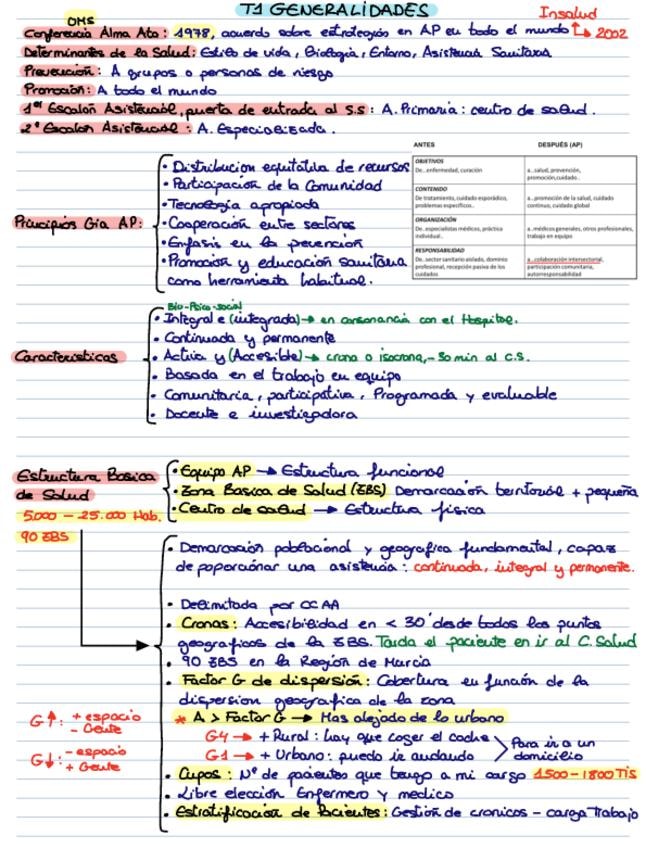 T1 GENERALIDADES
OMS
Insalud
Conferencia Alma Ata: 1978, acuerdo sobre estrategias en AP en todo el mundo ↳ 2002
Determinantes de la Salud: Estilo de vida, Biología, Entorno, Asistencia Sanitaria
Prevención: A grupos o personas de riesgo
Promoción: A todo el mundo
1er Escalón Asistencial, puerta de entrada al S.S: A. Primaria: centro de salud.
2º Escalón Asistencial: A. Especializada.
Principios Gía AP:
• Distribución equitativa de recursos
• Participación de la Comunidad
• Tecnología apropiada
• Cooperación entre sectores
• Énfasis en la pevención
• Promoción y educación sanitaria
como herramienta habitual.
ANTES DESPUÉS (AP)
OBJETIVOS
De..enfermedad, curación
a..salud, prevención, promoción,cuidado..
CONTENIDO
De tratamiento, cuidado esporádico, problemas específicos..
a..promoción de la salud, cuidado continuo, cuidado global
ORGANIZACIÓN
De..especialistas médicos, práctica individual..
a..médicos generales, otros profesionales, trabajo en equipo
RESPONSABILIDAD
De..sector sanitario aislado, dominio profesional, recepción pasiva de los cuidados
a..colaboración intersectorial, participación comunitaria, autorresponsabilidad
Características
Bio-Psico-social
• Integral e (integrada) → en consonancia con el Hospital.
• Continuada y permanente
• Activa y (Accesible) → crona o isocrona, - 30 min al C.S.
• Basada en el trabajo en equipo
• Comunitaria, participativa, Programada y evaluable
• Docente e investigadora
Estructura Basica
de Salud
5000 – 25.000 Hab.
90 ZBS
• Equipo AP → Estructura funcional
• Zona Basica de Salud (ZBS) Demarcación territorial + pequeña
• Centro de salud → Estructura física
• Demarcación poblacional y geografica fundamental, capaz
de poporcionar una asistencia: continuada, integral y permanente.
• Delimitada por CCAA
• Cronas: Accesibilidad en < 30' desde todos los puntos
geograficos de la ZBS. Tarda el paciente en ir al C. Salud
• 90 ZBS en la Región de Murcia
• Factor G de dispersión: Cobertura en función de la
dispersion geografica de la zona
* A > Factor G → Mas alejado de lo urbano
G4 → + Rural: hay que coger el coche
G1 → + Urbano: puedo ir andando
Para ir a un
domicilio
G↑: + espacio
- Gente
G↓: - espacio
+ Gente
• Cupos: Nº de pacientes que tengo a mi cargo 1500-1800 TIS
• Libre elección Enfermero y medico
• Estratificación de Pacientes: Gestión de cronicos – carga Trabajo